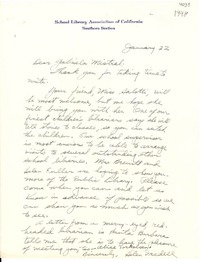 School Library Association of California
Southern Section
January 22
Dear Gabriela Mistral:
Thank you for taking time to
write.
Your friend, Miss Salotti, will
be most welcome, but we hope she
will bring you with her. One of our
finest children's librarians says she will
tell stories to classes, so you can watch
the children. Our school supervisor
is most anxious to be able to arrange
visits to several outstanding other
school libraries. Mrs
Helen Fuller are hoping to show you
more of the Public Library. Please
come when you can and let us
know in advance if possible so we
can show you as much as you wish
to see.
A letter from a merry, red
headed librarian in Santa Barbara
tells me that she is to have the pleasure
of meeting you
Sincerely, Helen Iredell